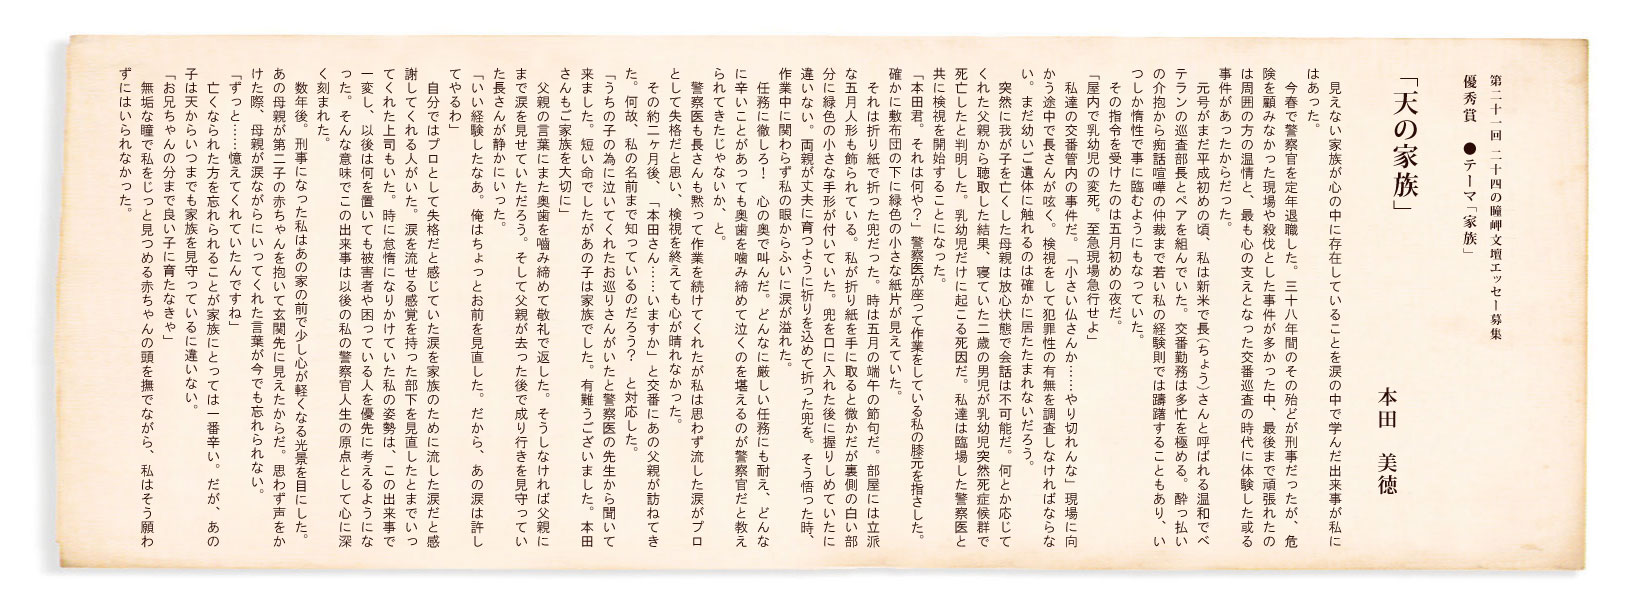 第二十一回 二十四の瞳岬文壇エッセー募集
優秀賞　●テーマ「家族」
「天の家族」
本田　美徳
　見えない家族が心の中に存在していることを涙の中で学んだ出来事が私に
はあった。
　今春で警察官を定年退職した。三十八年間のその殆どが刑事だったが、危
険を顧みなかった現場や殺伐とした事件が多かった中、最後まで頑張れたの
は周囲の方の温情と、最も心の支えとなった交番巡査の時代に体験した或る
事件があったからだった。
　元号がまだ平成初めの頃、私は新米で長（ちょう）さんと呼ばれる温和でベ
テランの巡査部長とペアを組んでいた。交番勤務は多忙を極める。酔っ払い
の介抱から痴話喧嘩の仲裁まで若い私の経験則では躊躇することもあり、い
つしか惰性で事に臨むようにもなっていた。
　その指令を受けたのは五月初めの夜だ。
「屋内で乳幼児の変死。至急現場急行せよ」
　私達の交番管内の事件だ。「小さい仏さんか……やり切れんな」現場に向
かう途中で長さんが呟く。検視をして犯罪性の有無を調査しなければならな
い。まだ幼いご遺体に触れるのは確かに居たたまれないだろう。
　突然に我が子を亡くした母親は放心状態で会話は不可能だ。何とか応じて
くれた父親から聴取した結果、寝ていた二歳の男児が乳幼児突然死症候群で
死亡したと判明した。乳幼児だけに起こる死因だ。私達は臨場した警察医と
共に検視を開始することになった。
「本田君。それは何や？」警察医が座って作業をしている私の膝元を指さした。
確かに敷布団の下に緑色の小さな紙片が見えていた。
　それは折り紙で折った兜だった。時は五月の端午の節句だ。部屋には立派
な五月人形も飾られている。私が折り紙を手に取ると微かだが裏側の白い部
分に緑色の小さな手形が付いていた。兜を口に入れた後に握りしめていたに
違いない。両親が丈夫に育つように祈りを込めて折った兜を。そう悟った時、
作業中に関わらず私の眼からふいに涙が溢れた。
　任務に徹しろ！　心の奥で叫んだ。どんなに厳しい任務にも耐え、どんな
に辛いことがあっても奥歯を噛み締めて泣くのを堪えるのが警察官だと教え
られてきたじゃないか、と。
　警察医も長さんも黙って作業を続けてくれたが私は思わず流した涙がプロ
として失格だと思い、検視を終えても心が晴れなかった。
　その約二ヶ月後、「本田さん……いますか」と交番にあの父親が訪ねてき
た。何故、私の名前まで知っているのだろう？　と対応した。
「うちの子の為に泣いてくれたお巡りさんがいたと警察医の先生から聞いて
来ました。短い命でしたがあの子は家族でした。有難うございました。本田
さんもご家族を大切に」
　父親の言葉にまた奥歯を嚙み締めて敬礼で返した。そうしなければ父親に
まで涙を見せていただろう。そして父親が去った後で成り行きを見守ってい
た長さんが静かにいった。
「いい経験したなあ。俺はちょっとお前を見直した。だから、あの涙は許し
てやるわ」
　自分ではプロとして失格だと感じていた涙を家族のために流した涙だと感
謝してくれる人がいた。涙を流せる感覚を持った部下を見直したとまでいっ
てくれた上司もいた。時に怠惰になりかけていた私の姿勢は、この出来事で
一変し、以後は何を置いても被害者や困っている人を優先に考えるようにな
った。そんな意味でこの出来事は以後の私の警察官人生の原点として心に深
く刻まれた。
　数年後。刑事になった私はあの家の前で少し心が軽くなる光景を目にした。
あの母親が第二子の赤ちゃんを抱いて玄関先に見えたからだ。思わず声をか
けた際、母親が涙ながらにいってくれた言葉が今でも忘れられない。
「ずっと……憶えてくれていたんですね」
　亡くなられた方を忘れられることが家族にとっては一番辛い。だが、あの
子は天からいつまでも家族を見守っているに違いない。
「お兄ちゃんの分まで良い子に育たなきゃ」
　無垢な瞳で私をじっと見つめる赤ちゃんの頭を撫でながら、私はそう願わ
ずにはいられなかった。